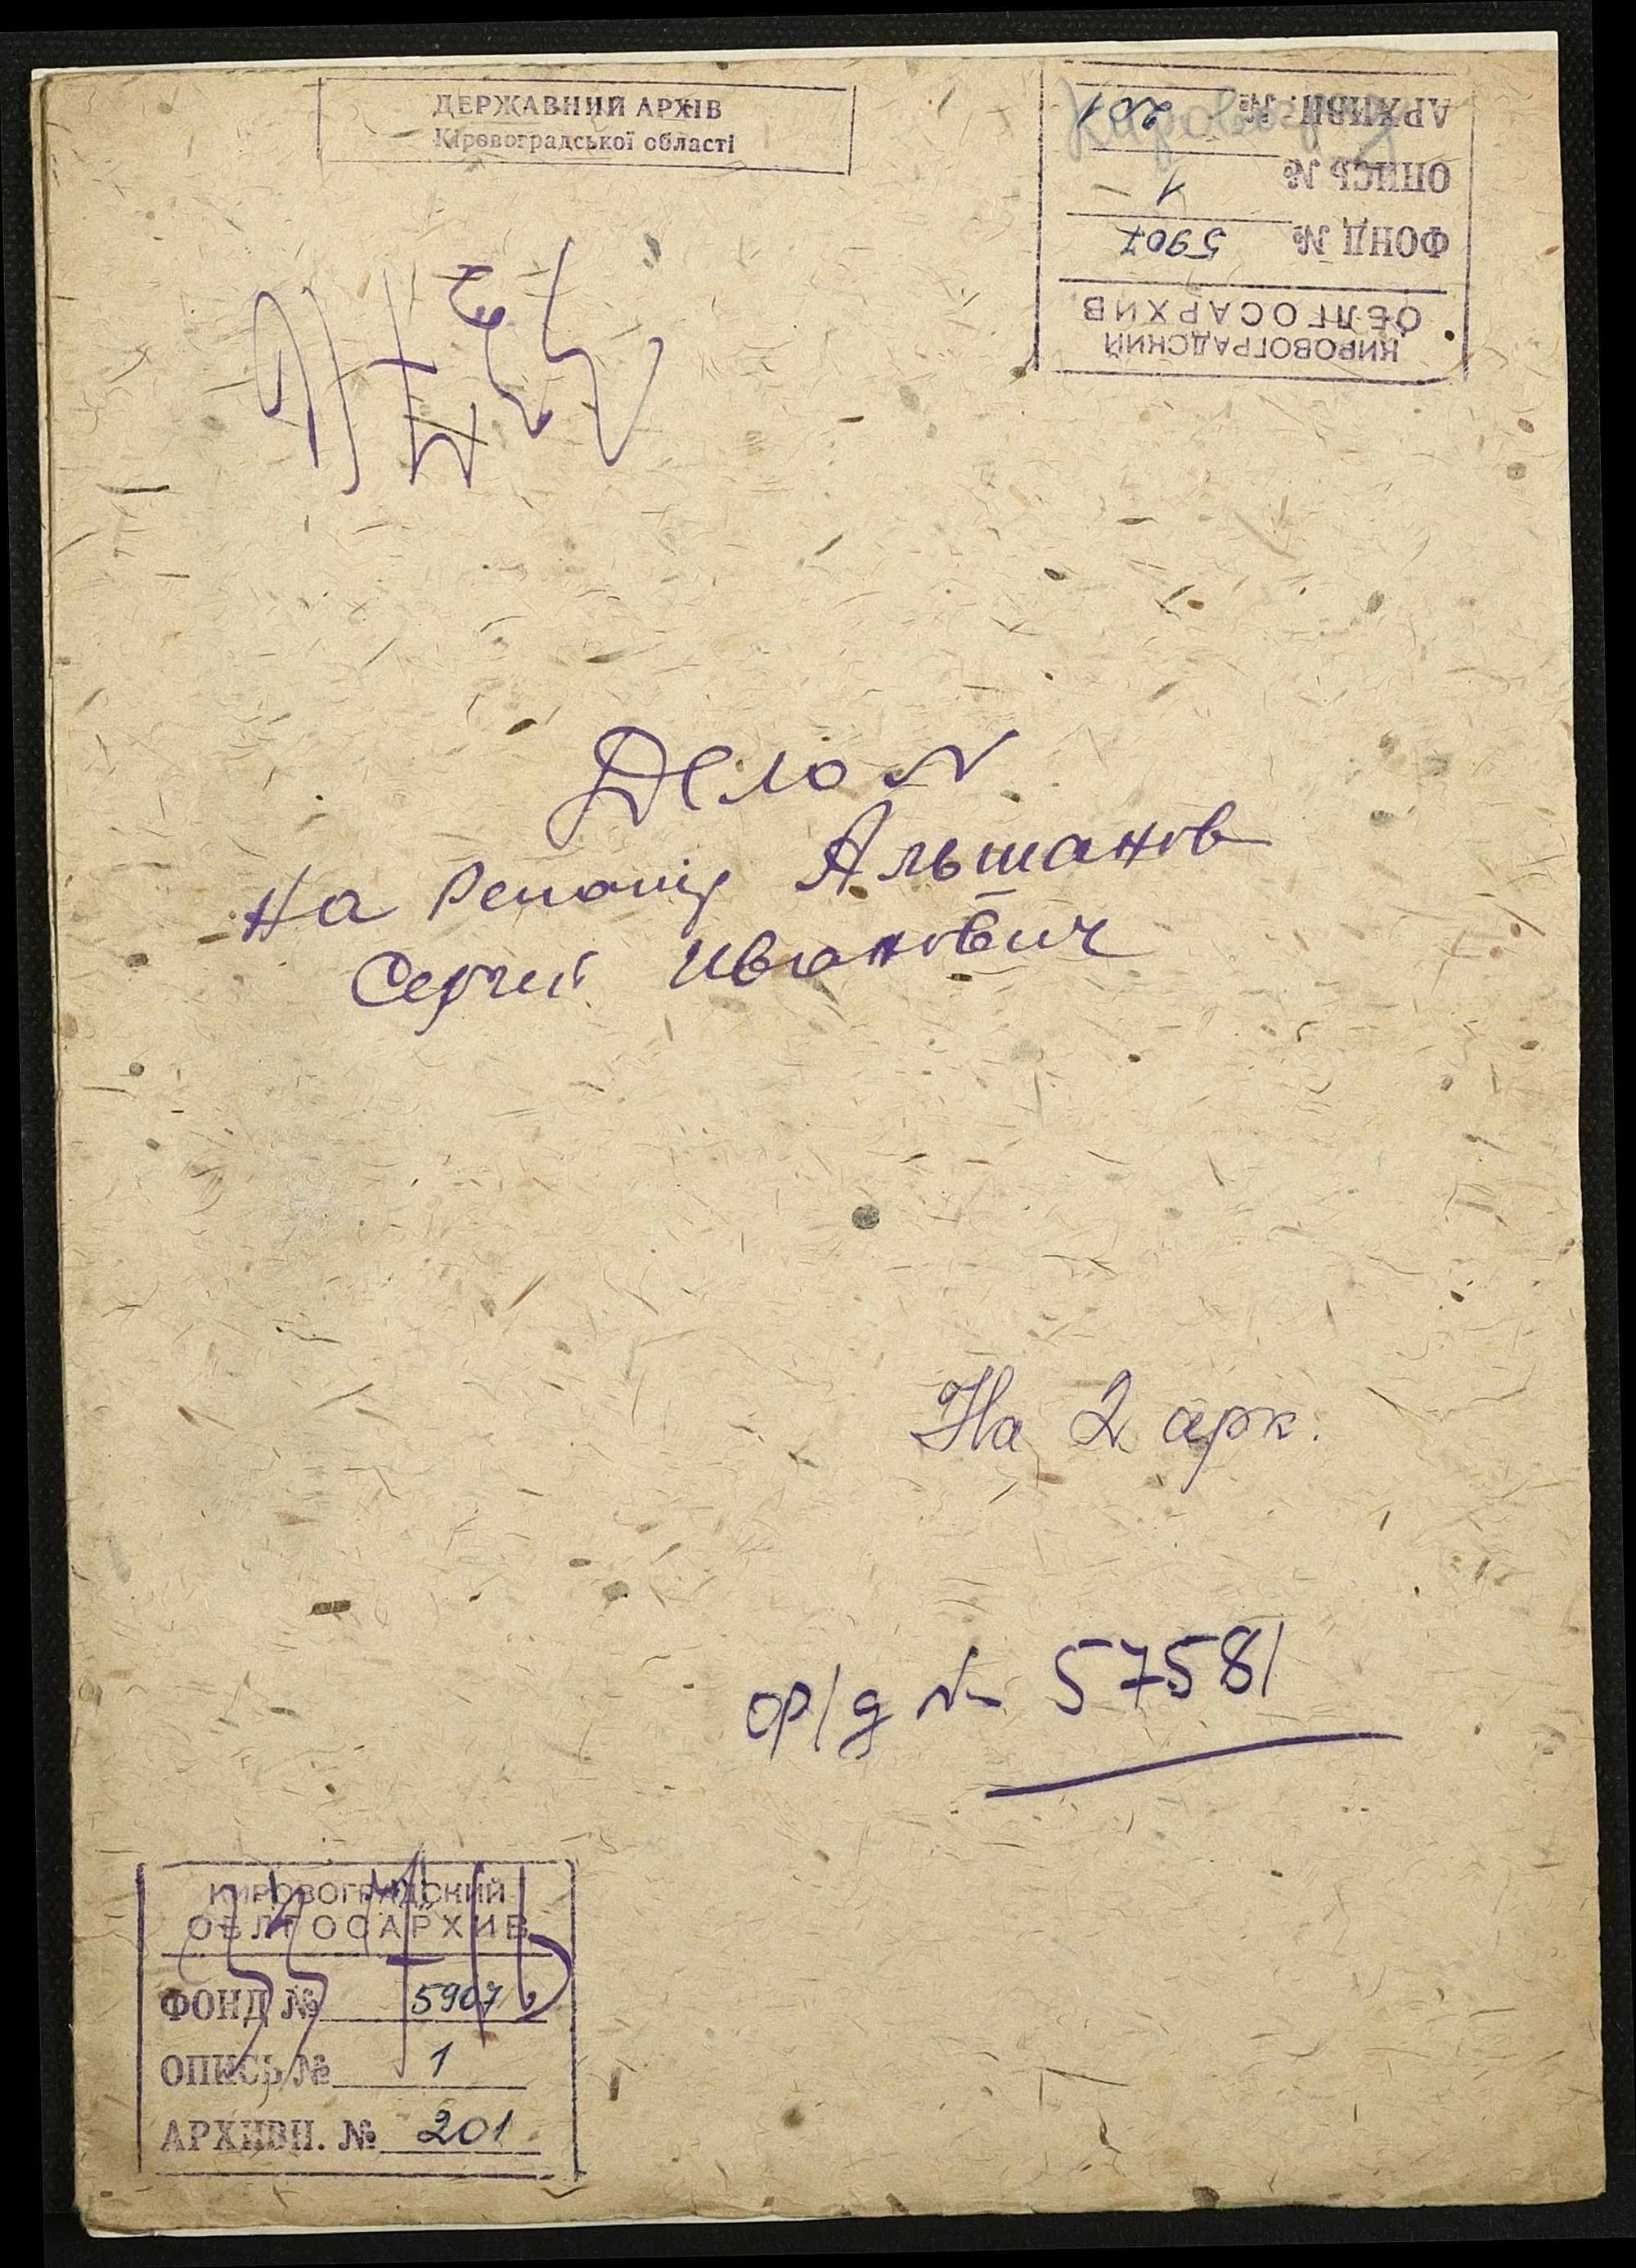 ДЕРЖАВНИЙ АРХІВ
Кіровоградської області
КИРОВОГРАДСКИЙ
ОБЛГОСАРХИВ
ФОНД № 5907
ОПИСЬ № 1
АРХИВН. № 201
Кировоград
Дело №
на Репатр Альшанов
Сергей Иванович
На 2 арк.
ор/д № 57581
КИРОВОГРАДСКИЙ
ОБЛГОСАРХИВ
ФОНД № 5907
ОПИСЬ № 1
АРХИВН. № 201